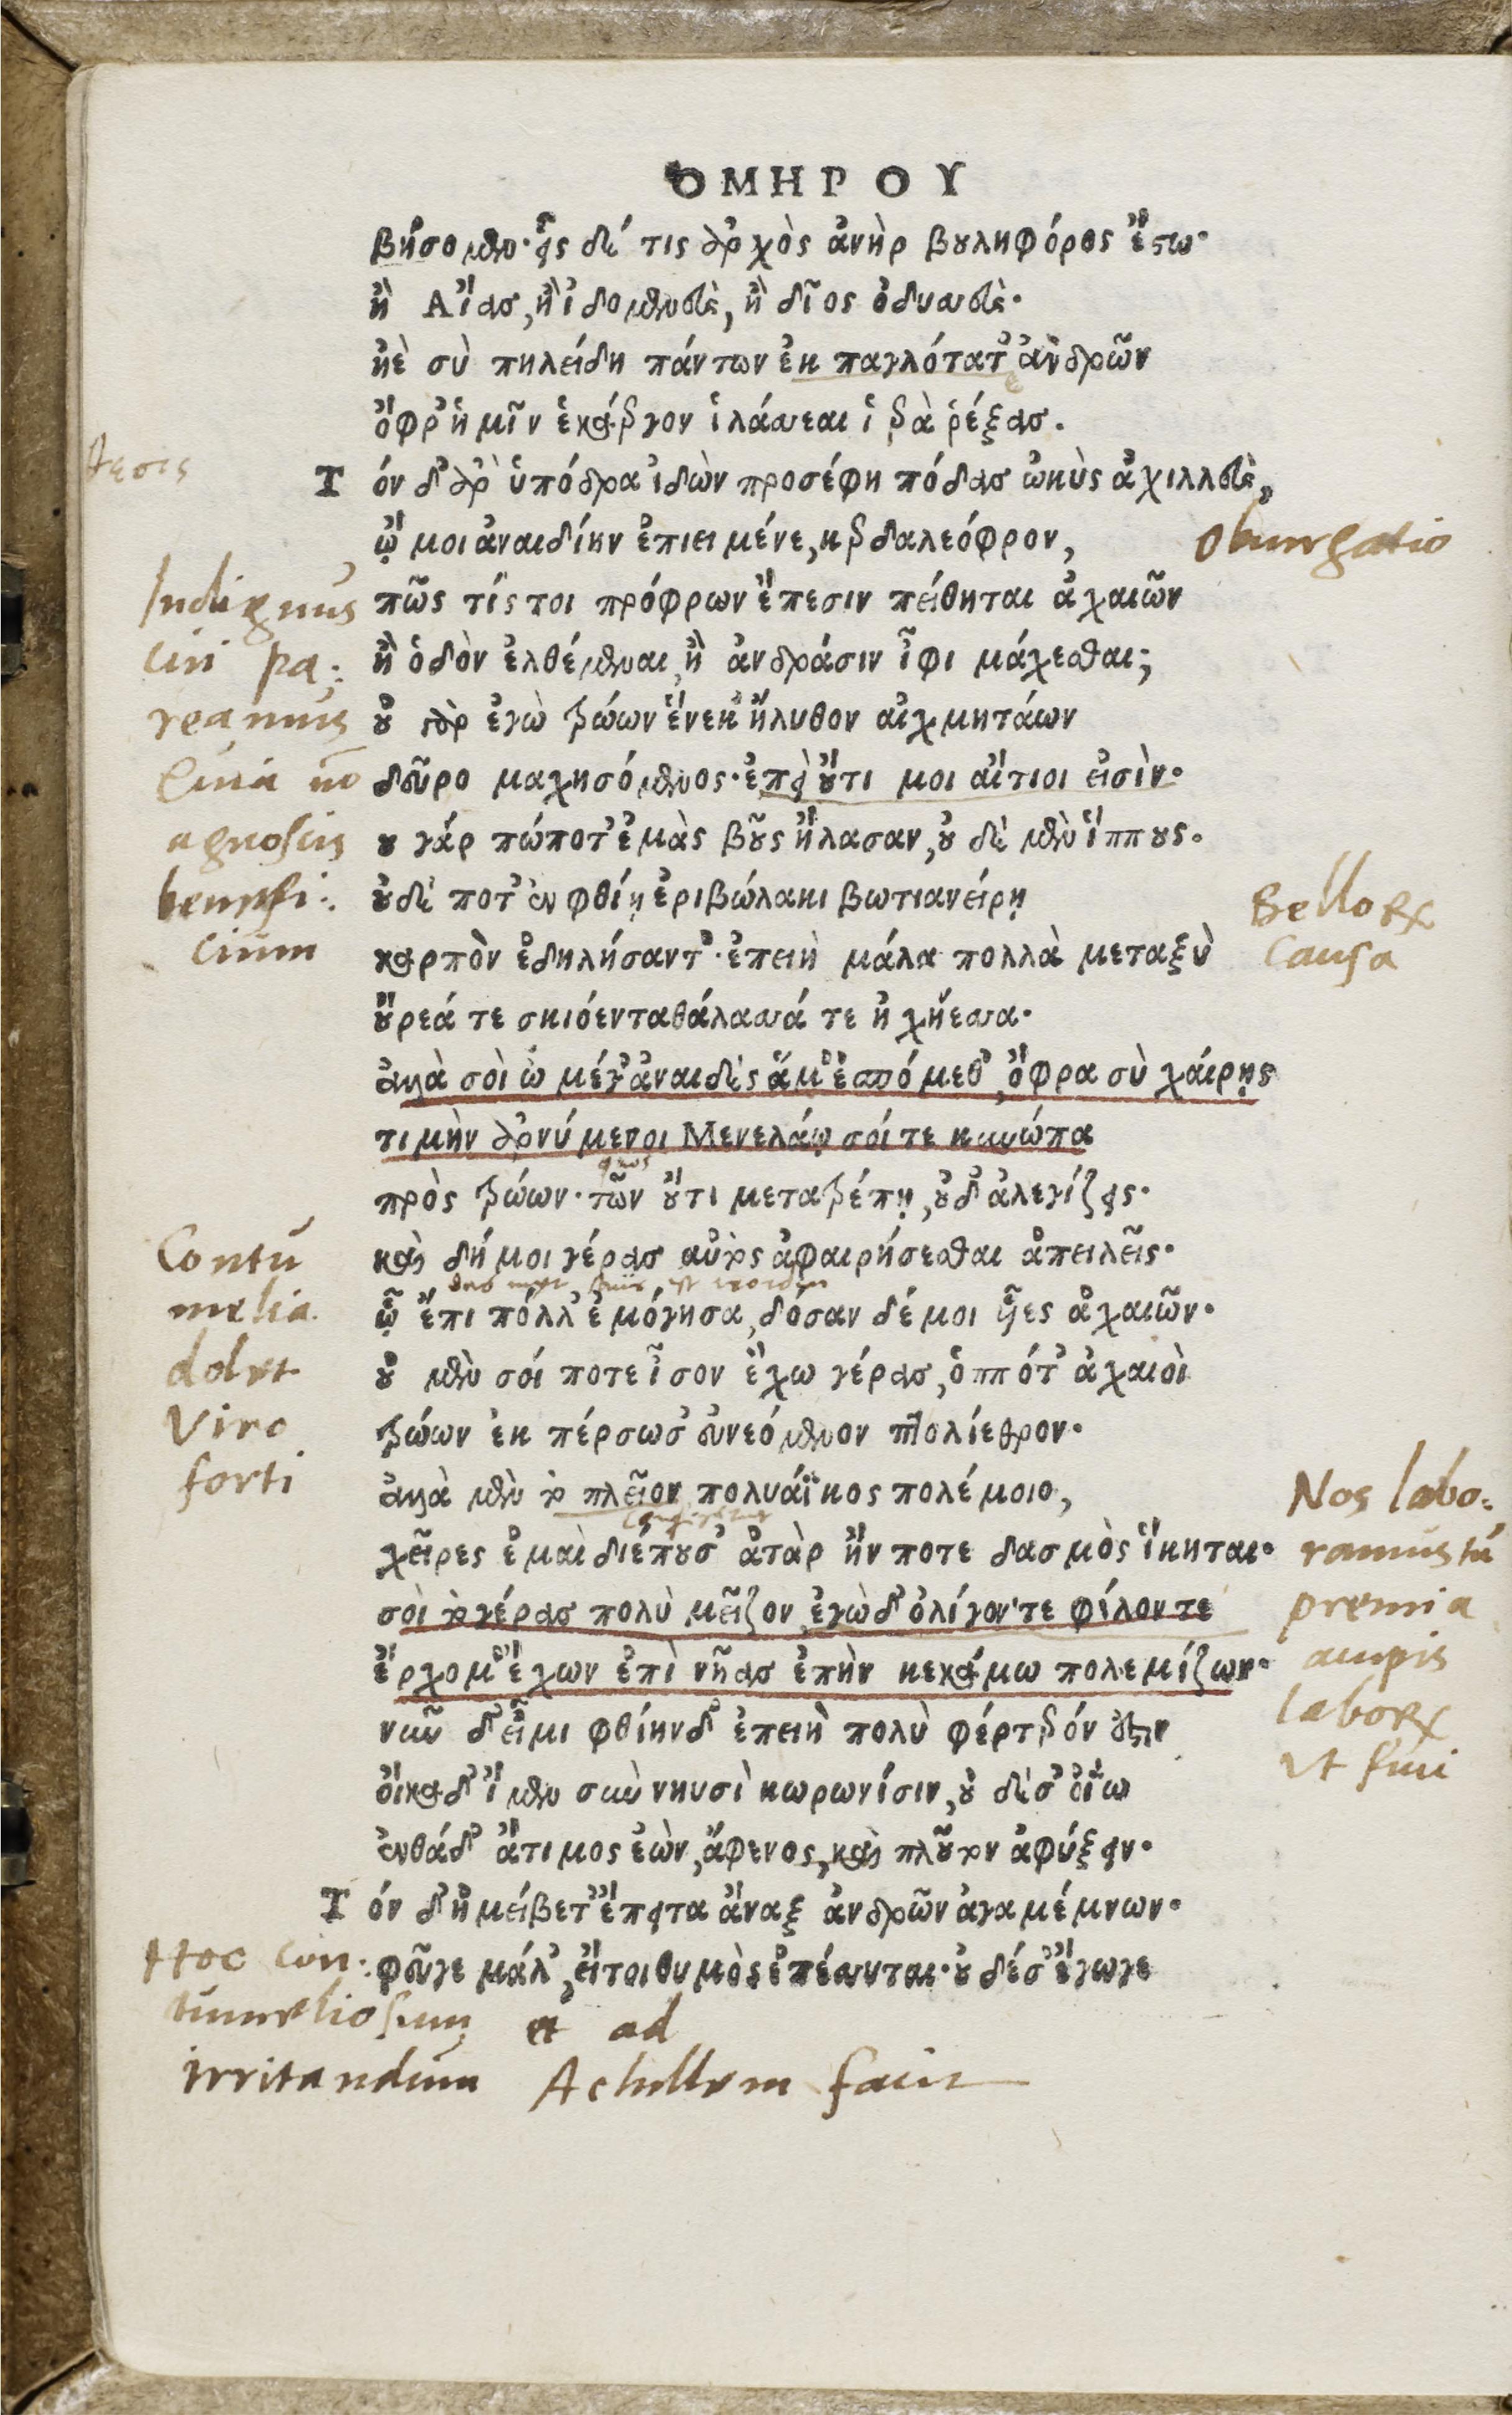 ὉΜΗΡΟΥ
βήσομεν· εἷς δέ τις ἀρχὸς ἀνὴρ βουληφόρος ἔστω·
ἢ Αἴας, ἢ ἰδομενεὺς, ἢ δῖος ὀδυσσεὺς·
ἠὲ σὺ πηλείδη πάντων ἐκπαγλότατ᾽ ἀνδρῶν
ὄφρ᾽ ἡμῖν ἑκάεργον ἱλάσσεαι ἱερὰ ῥέξας.
Τόν δ᾽ ἀρ᾽ ὑπόδρα ἰδὼν προσέφη πόδας ὠκὺς ἀχιλλεὺς,
ᾤ μοι ἀναιδίην ἐπιειμένε, κερδαλεόφρον,
Obiurgatio
Indignus
cui pa:
reamus
Quia nō
agnoscis
benefi:
cium
πῶς τίς τοι πρόφρων ἔπεσιν πείθηται ἀχαιῶν
ἢ ὁδὸν ἐλθέμεναι, ἢ ἀνδράσιν ἶφι μάχεσθαι;
οὐ γὰρ ἐγὼ τρώων ἕνεκ᾽ ἤλυθον αἰχμητάων
δεῦρο μαχησόμενος· ἐπεὶ οὔτι μοι αἴτιοι εἰσὶν·
ου γάρ πώποτ᾽ ἐμὰς βοῦς ἤλασαν, οὐ δὲ μὲν ἵππους.
οὐδέ ποτ᾽ ἐν φθίῃ ἐριβώλακι βωτιανείρῃ
καρπὸν ἐδηλήσαντ᾽· ἐπειὴ μάλα πολλὰ μεταξὺ
Causa
οὔρεά τε σκιόεντα θάλασσά τε ἠχήεσσα·
ἀλλὰ σοὶ ὠ μέγ᾽ ἀναιδὲς ἅμ᾽ ἑσπόμεθ᾽, ὄφρα σὺ χαίρῃς
τιμὴν ἀρνύμενοι Μενελάῳ σοί τε κυνώπα
πρὸς τρώων· τῶν οὔτι μετατρέπῃ, οὐδ᾽ ἀλεγίζεις·
Contu
melia
dolet
Viro
forti
καὶ δή μοι γέρας αὐτὸς ἀφαιρήσεσθαι ἀπειλεῖς·
ᾧ ἔπι πόλλ᾽ ἐμόγησα, δοσαν δέ μοι υἷες ἀχαιῶν·
οὐ μὲν σοί ποτε ἶσον ἔχω γέρας, ὁππότ᾽ ἀχαιοὶ
τρώων ἐκπέρσωσ᾽ εὐναιόμενον πτολίεθρον·
ἀλλὰ μὲν τὸ πλεῖον πολυάϊκος πολέμοιο,
χεῖρες ἐμαὶ διέπουσ᾽ ἀτὰρ ἤν ποτε δασμὸς ἵκηται·
σοὶ τὸ γέρας πολὺ μεῖζον, ἐγὼ δ᾽ ὀλίγον τε φίλον τε
ἔρχομ᾽ ἔχων ἐπὶ νῆας ἐπὴν κεκάμω πολεμίζων·
Nos labo:
ramus tu
premia
νῦν δ᾽ εἶμι φθίηνδ᾽ ἐπειὴ πολὺ φέρτερόν ἐστιν
οἴκαδ᾽ ἴμεν σὺν νηυσὶ κωρωνίσιν, οὐ δέ σ᾽ ὀΐω
ἐνθάδ᾽ ἄτιμος ἐὼν, ἄφενος, καὶ πλοῦτον ἀφύξειν·
Τόν δ᾽ ἠμείβετ᾽ ἔπειτα ἄναξ ἀνδρῶν ἀγαμέμνων·
φεῦγε μάλ᾽, εἴ τοι θυμὸς ἐπέσσυται· οὐ δέ σ᾽ ἔγωγε
Hoc con:
tumeliosum et ad
irritandum Achillem facit